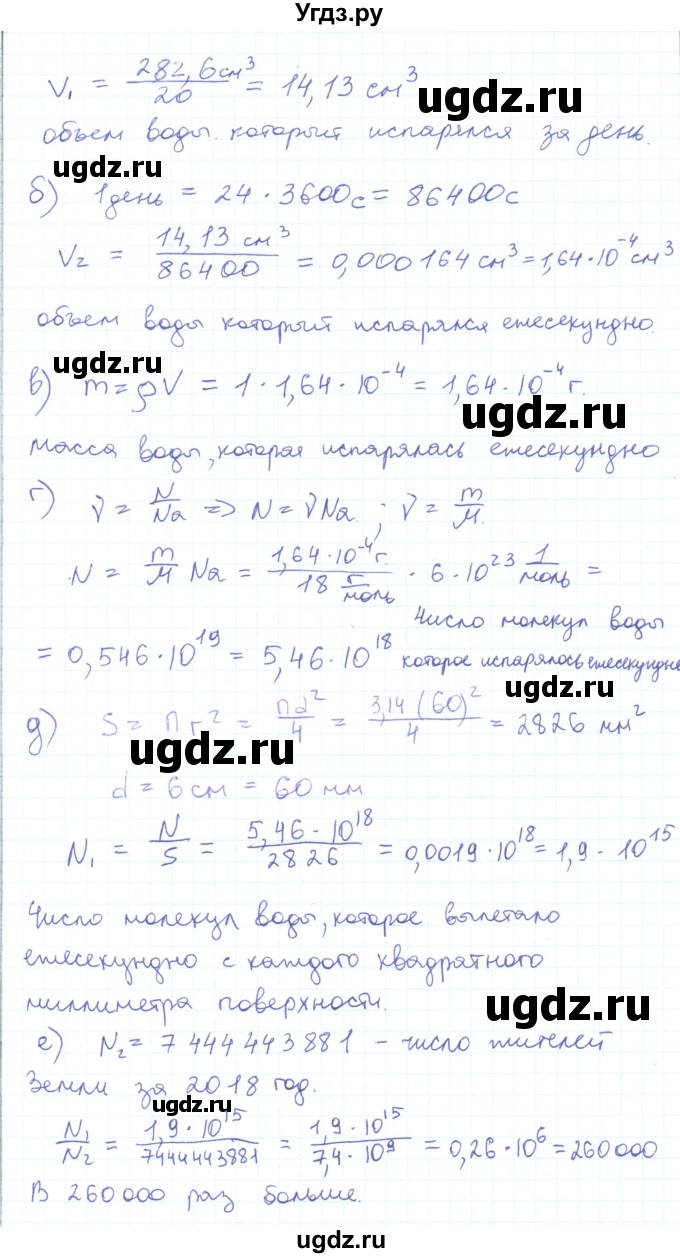 Угдз.ру
V₁ = 282,6см³/20 = 14,13 см³
ugdz.ru
объем воды. который испарялся за день.
ugdz.ru
б) 1день = 24 · 3600с = 86400с
V₂ = 14,13 см³/86400 = 0,000164 см³ = 1,64·10⁻⁴ см³
объем воды который испарялся ежесекундно.
ugdz.ru
в) m = ρV = 1 · 1,64 · 10⁻⁴ = 1,64 · 10⁻⁴ г.
ugdz.ru
масса воды, которая испарялась ежесекундно
г) ν = N/Na => N = νNa ; ν = m/M.
N = m/M Na = 1,64·10⁻⁴г./18 г/моль · 6·10²³ 1/моль =
Число молекул воды
= 0,546·10¹⁹ = 5,46·10¹⁸ которое испарялось ежесекундно
ugdz.ru
д) S = πr² = πd²/4 = 3,14(60)²/4 = 2826 мм²
ugdz.ru
d = 6см = 60 мм
N₁ = N/S = 5,46 · 10¹⁸/2826 = 0,0019·10¹⁸ = 1,9 · 10¹⁵
Число молекул воды, которое вылетало
ежесекундно с каждого квадратного
миллиметра поверхности.
ugdz.ru
е) N₂ = 7444443881 – число жителей
Земли за 2018 год.
ugdz.ru
N₁/N₂ = 1,9 · 10¹⁵/7444443881 = 1,9 · 10¹⁵/7,4 · 10⁹ = 0,26 · 10⁶ = 260000
В 260000 раз больше.
ugdz.ru